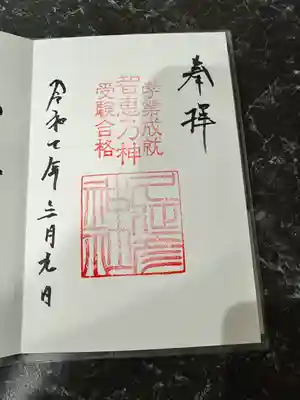 奉拝
学業成就
智恵乃神
受験合格
神社
令和七年三月九日